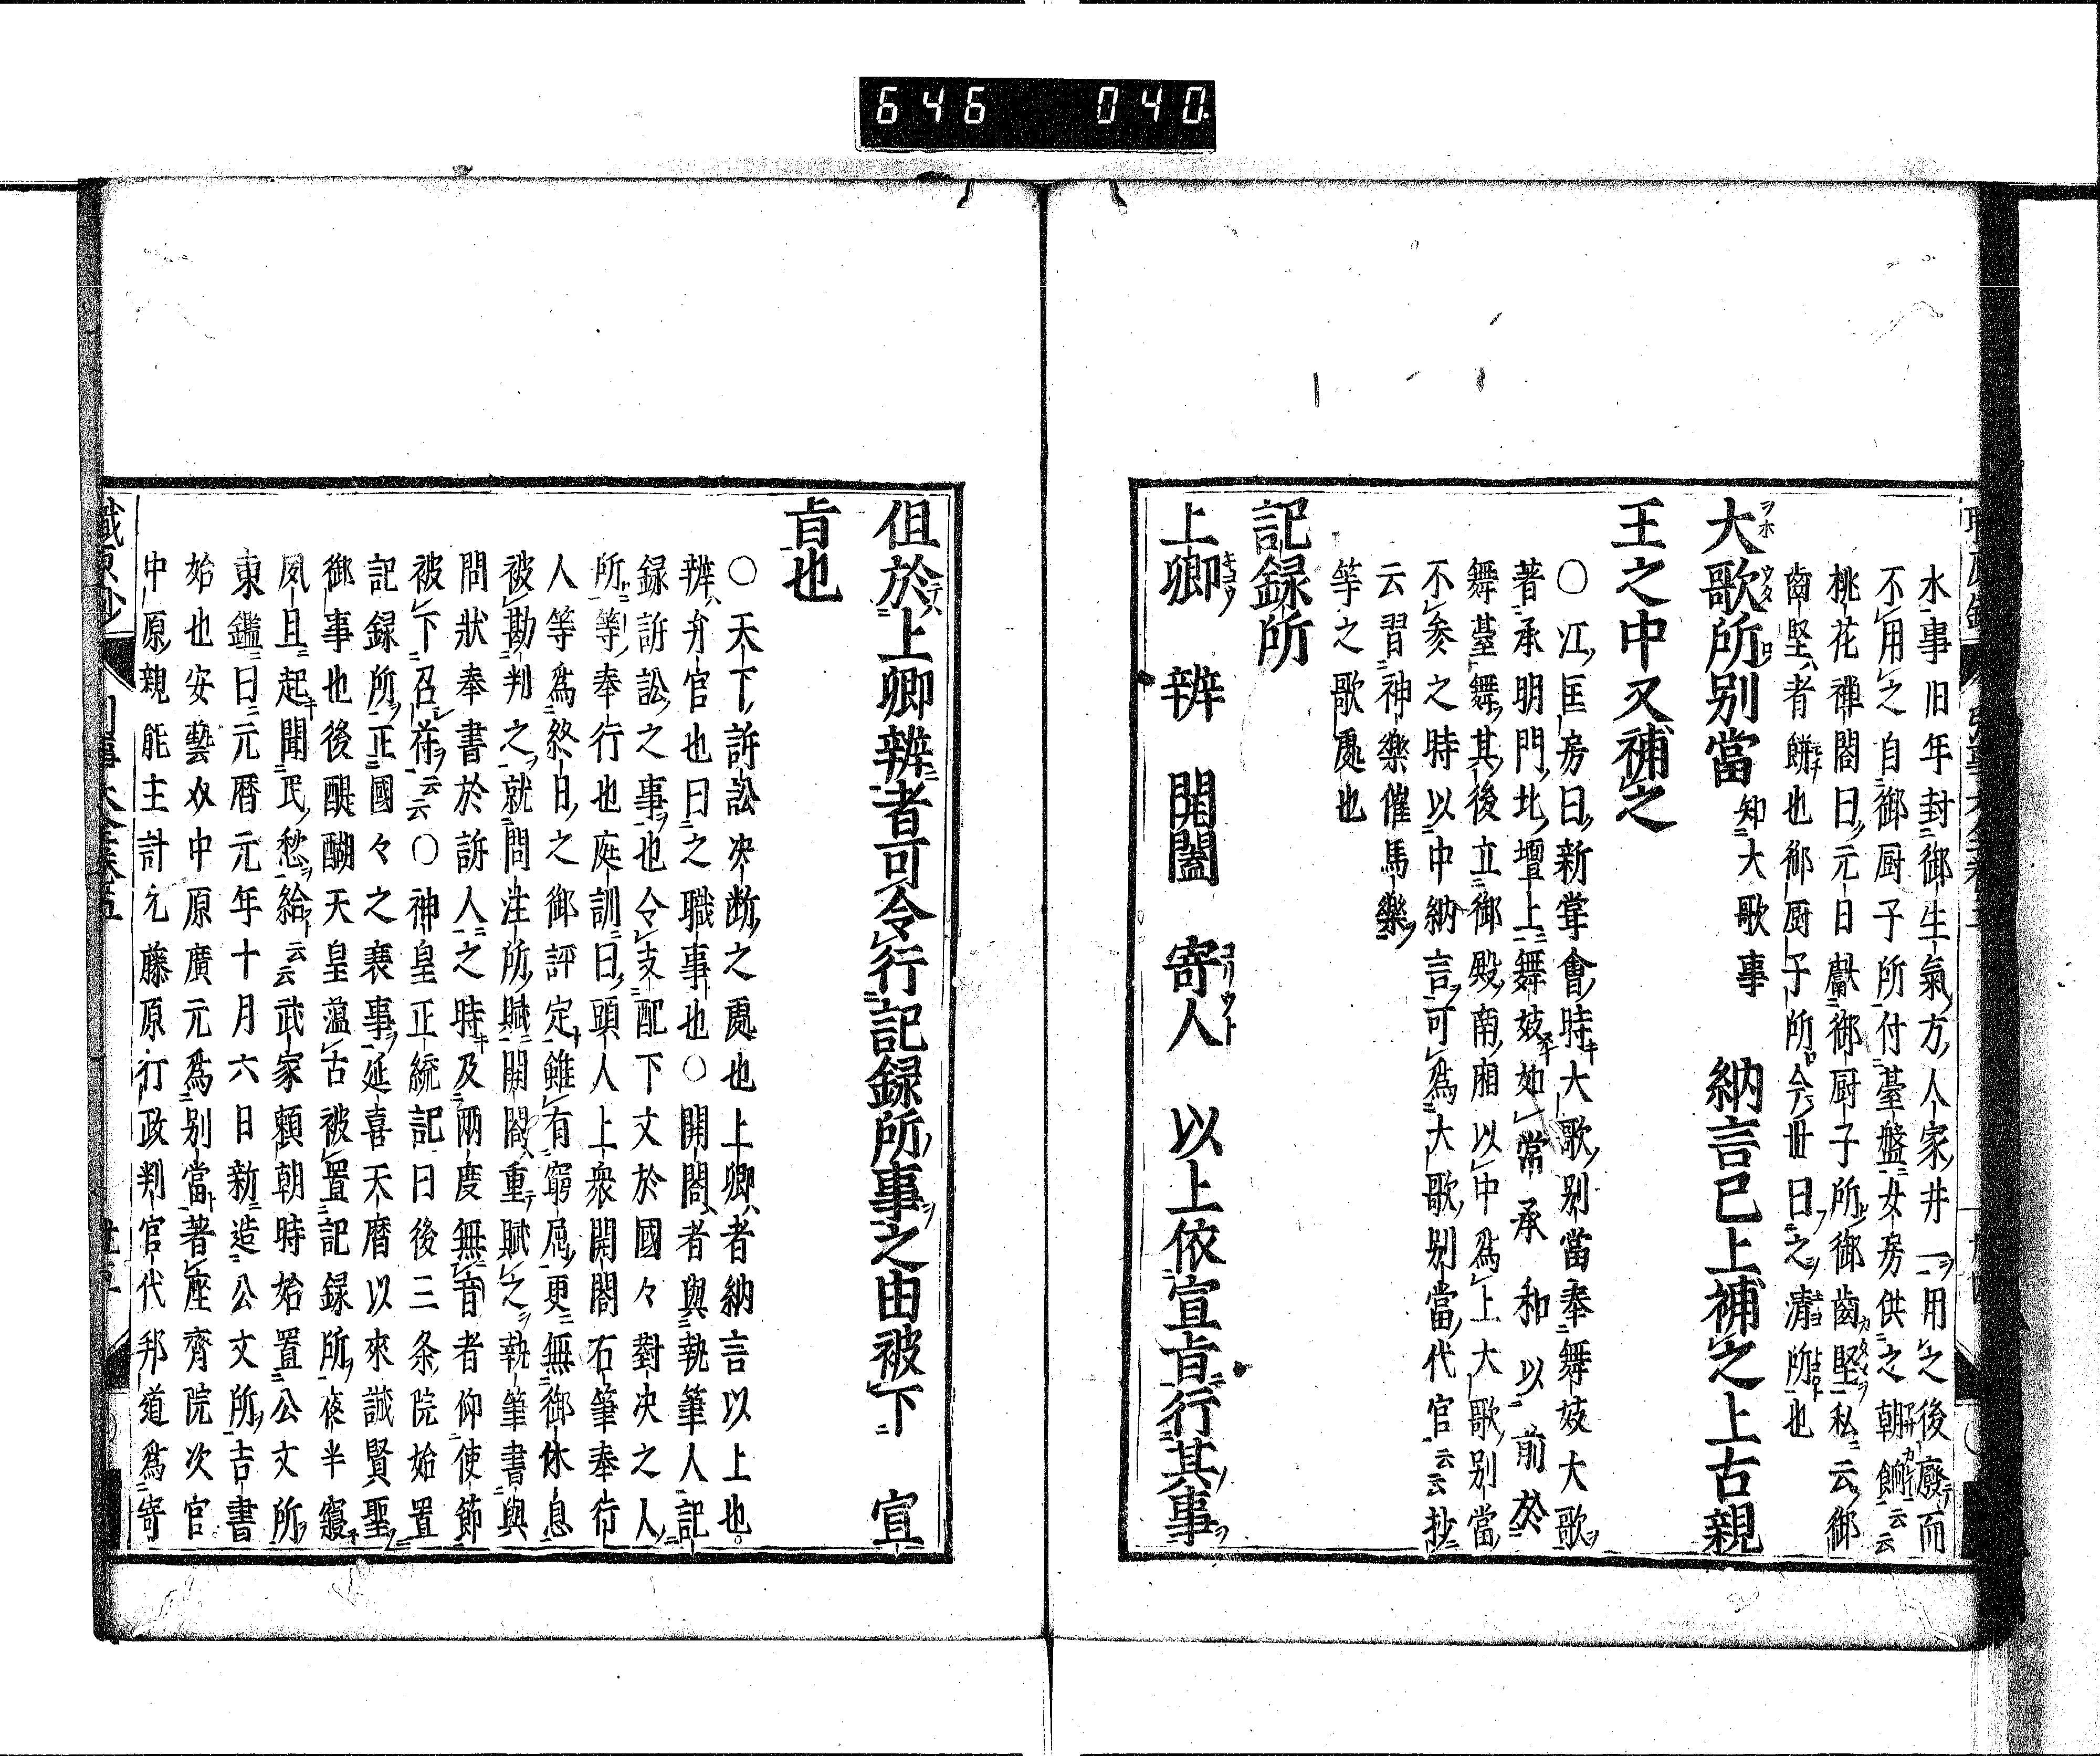 646 040
水事旧年封御生氣方人家井一用之後廢而
不用之自御厨子所付臺盤女房供之朝餉云云
桃花禅閤曰元日獻御厨子所御齒堅私云御
齒堅者餅也御厨子所今世曰之清所也
大歌所別當 知大歌事 納言已上補之上古親
王之中又補之
○江匡房曰新甞會時大歌別當奉舞妓大歌
著承明門北壇上舞妓如常承和以前於
舞臺舞其後立御殿南廂以中爲上大歌別當
不参之時以中納言可爲大歌別當代官云云抄
云習神樂催馬樂
等之歌處也
記録所
上卿 辨 開闔 寄人 以上依宣旨行其事
但於上卿辨者可令行記録所事之由被下 宣
旨也
○天下訴訟决断之處也上卿者納言以上也
辨弁官也曰之職事也○開闔者與執筆人記
録訴訟之事也令支配下文於國々對决之人
所等奉行也庭訓曰頭人上衆開闔右筆奉行
人等爲終日之御評定雖有窮屈更無御休息
被勘判之就問注所賦開闔重賦之執筆書與
問狀奉書於訴人之時及兩度無音者仰使節
被下召符云云○神皇正統記曰後三条院始置
記録所正國々之衰事延喜天暦以來誠賢聖
御事也後醍醐天皇温古被置記録所夜半寢
夙且起聞民愁給云云武家頼朝時始置公文所
東鑑曰元暦元年十月六日新造公文所吉書
始也安藝以中原廣元爲別當著座齊院次官
中原親能主計允藤原行政判官代邦道爲寄